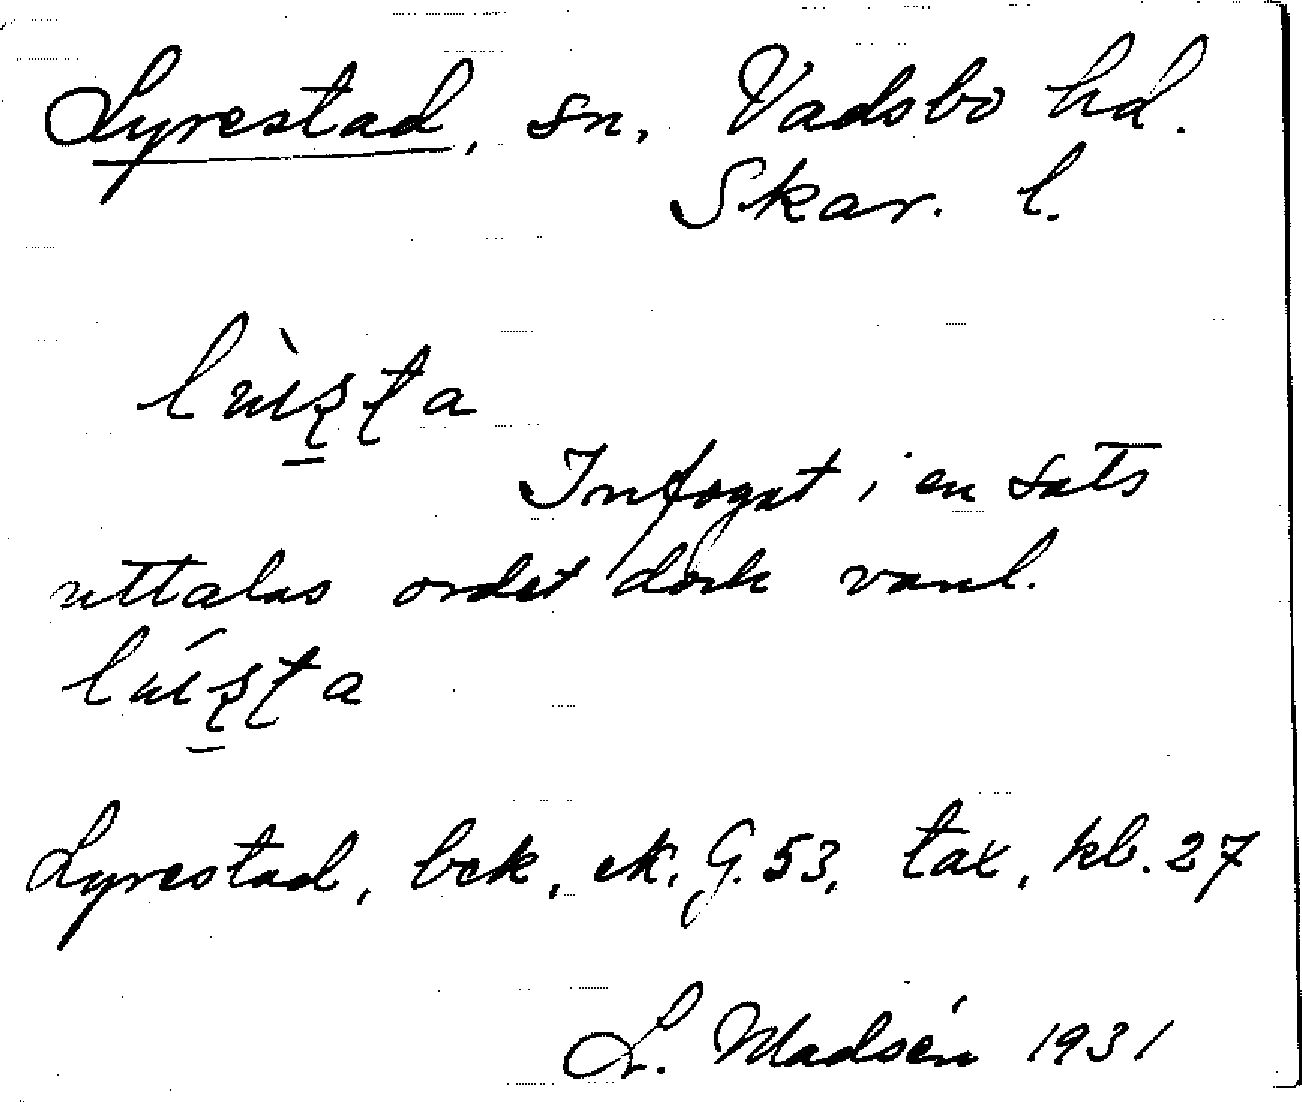 Lyrestad, sn. Vadsbo hd.
Skar. l.
Infogat i en sats
uttalas ordet dock vanl.
Lyrestad, bek, ek. G. 53, tax, kb. 27
L. Madsén 1931